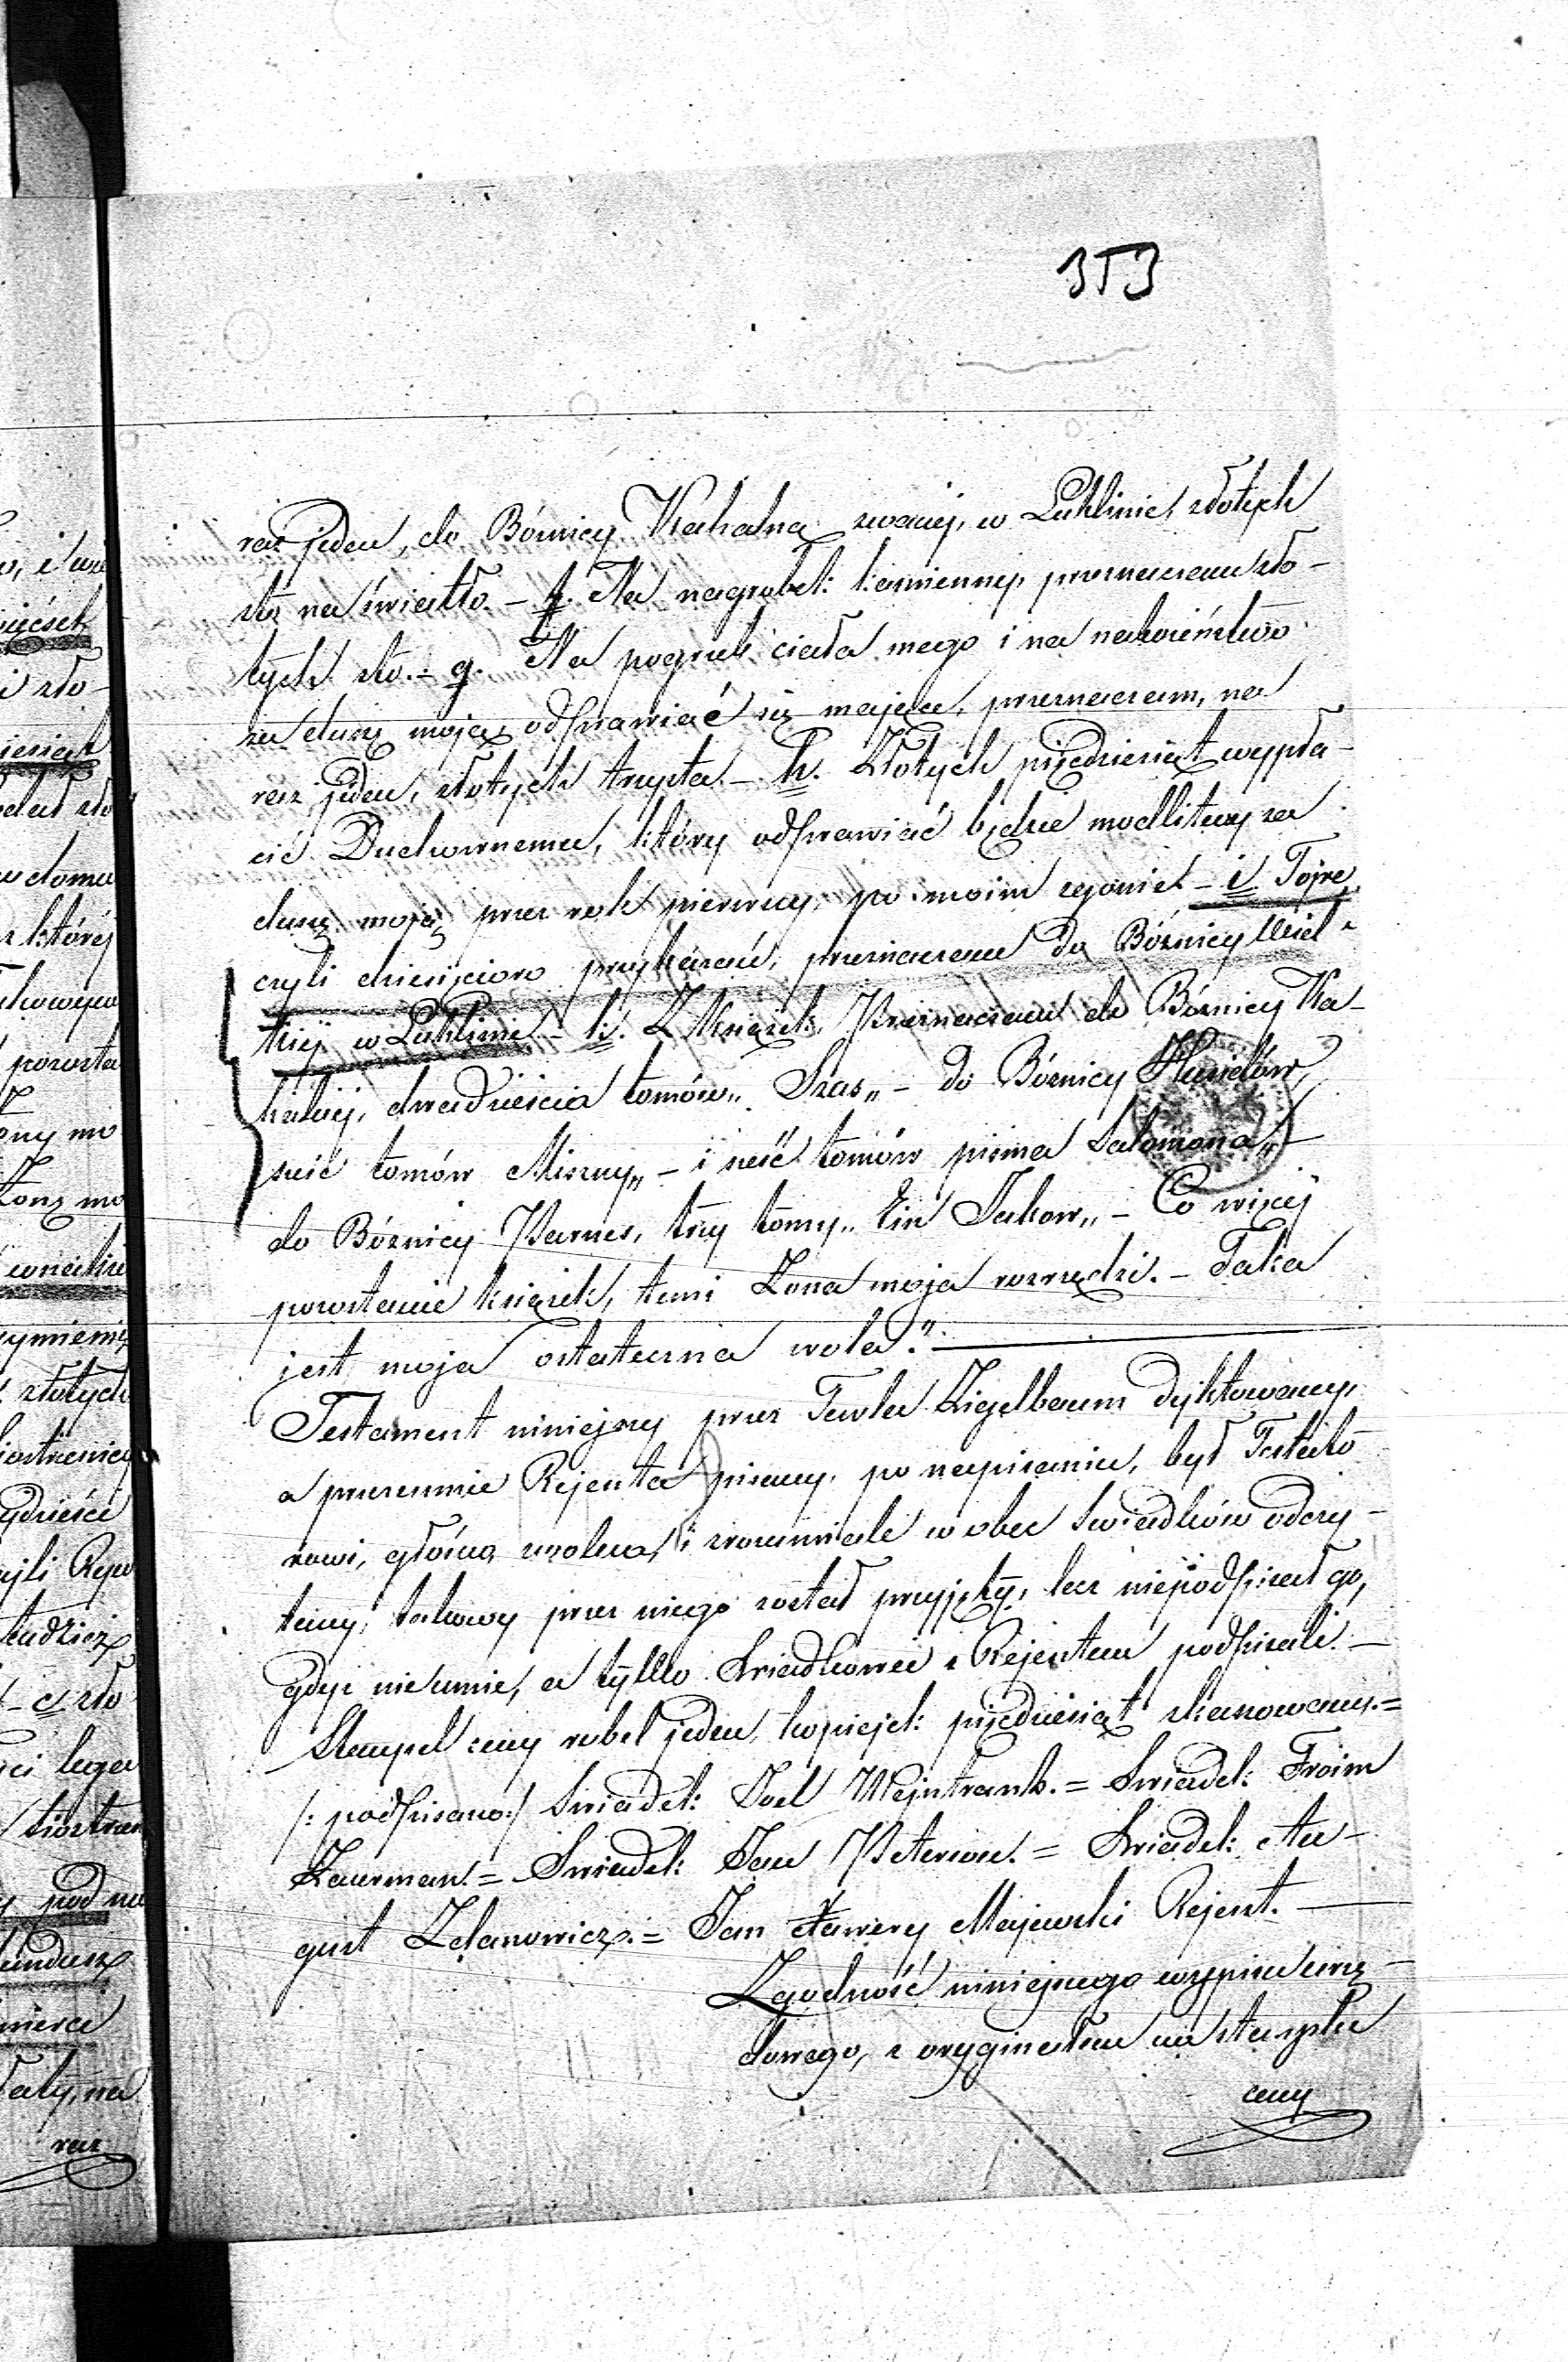 353
raz jeden, do Bóżnicy Kahalną zwanéj, w Lublinie, złotych
sto na światło. – f. Na nagrobek kamienny, przeznaczam zło-
tych sto. – g. Na pogrzeb ciała mego i na nabożeństwo
za duszę moję odprawiać się mające, przeznaczam, na
raz jeden, złotych trzysta – h. Złotych pięćdziesiąt wypła-
cić Duchownemu, który odprawiać będzie modlitwy za
duszę moję przez rok pierwszy, po moim zgonie. – i Tojre
czyli dziesięcioro przykazań, przeznaczam do Bóżnicy Wiel-
kiéj w Lublinie – k. Z Książek, Przeznaczam do Bóżnicy Ka-
halnéj, dwadzieścia tomów „ Szas „ – do Bóżnicy Husydów,
sześć tomów Miszny „ – i sześć tomów pisma Salomona „ –
do Bóżnicy Parnes, trzy tomy „ Ein Jakow „ – Co więcéj
pozostanie książek, temi Żona moja rozrządzi. – Taka
jest moja ostateczna wola." –
Testament niniejszy przez Tewla Zigelbaum dyktowany,
a przezemnie Rejenta pisany, po napisaniu, był Testato-
rowi, głośno, zwolna, i zrozumiale w obec Świadków odczy-
tany, takowy przez niego został przyjęty, lecz niepodpisał go,
gdyż nie umie, a tylko Świadkowie z Rejentem podpisali. –
Stempel ceny rubel jeden, kopiejek pięćdziesiąt skasowany. =
/: podpisano :/ Świadek Joel Wejntraub. = Świadek Froim
Zauerman. = Świadek Jan Peterson. = Świadek Au-
gust Zdanowicz. = Jan Xawery Majewski Rejent. –
Zgodność niniejszego wypisu urzę-
dowego, z oryginałem na stemplu
ceny